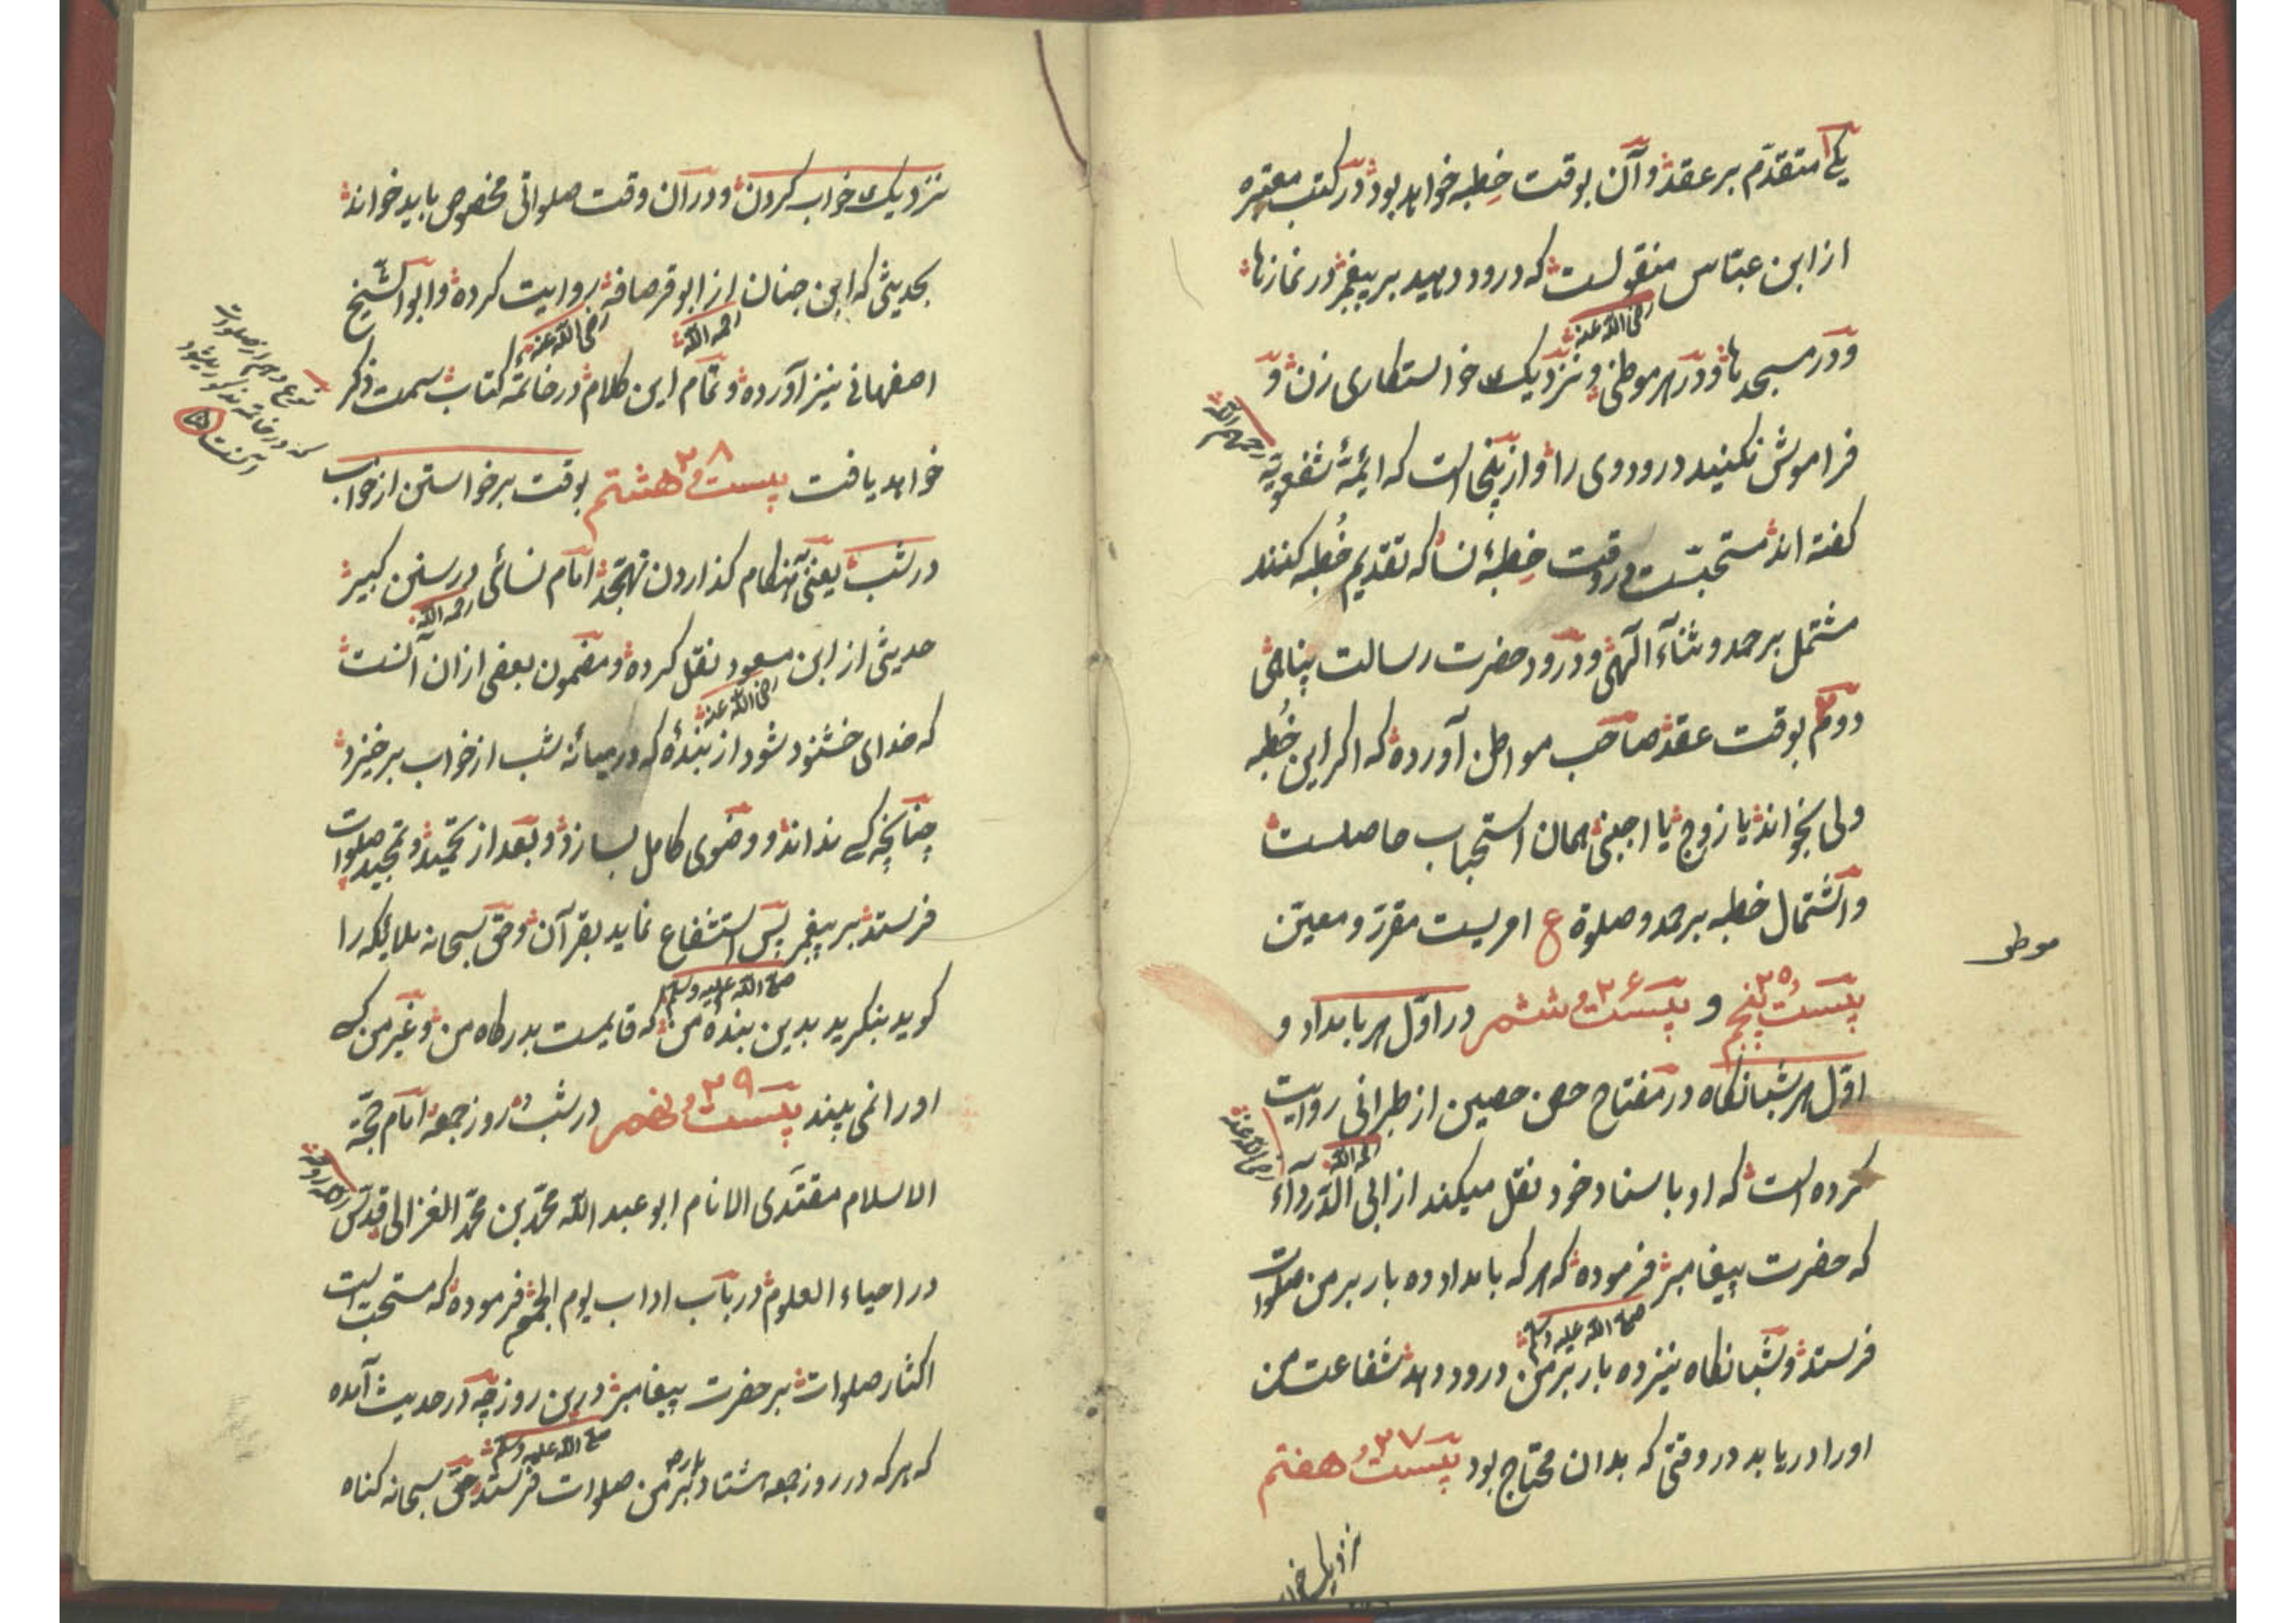 یکی متقدّم بر عقد و آن بوقت خِطبه خواهد بود در کتب معتبره
از ابن عبّاس منقولست که درود دهید بر پیغمبر در نمازها
رضی الله عنه
و در مسجدها و در هر موطنی و نزدیک خواستکاری زن و
فراموش نکنید درود وی را و از ینجا است که ائمّهٔ شفعویّه
رحمهم الله
کفته اند مستحبّست در وقت خِطبهٔ نسا که تقدیم خُطبه کنند
مشتمل بر حمد و ثنآء الٓهی و درود حضرت رسالت پناهی
دوم ۲ بوقت عقد صاحب مواطن آورده که اکر این خُطبه
ولی بخواند یا زوج یا اجنبی همان استحباب حاصلست
و اشتمال خطبه بر حمد و صلوة ع امریست مقرّر و معیّن
موطن
بیست و پنجم ۲۵ و بیست و ششم ۲۶ در اوّل هر بامداد و
اوّل هر شبانکاه در مفتاح حصن حصین از طبرانی روایت
رحمه الله
رضی الله عنه
کرده است که او باسناد خود نقل میکند از ابی الدّرداء
که حضرت پیغامبر فرموده که هر که بامداد ده بار بر من صلوات
صلی الله علیه وسلم
فرستد و شبانکاه نیز ده بار بر من درود دهد شفاعت من
او را دریابد در وقتی که بدان محتاج بود بیست و هفتم ۲۷
نزدیک خواب
نزدیک خواب کردن و در آن وقت صلواتی مخصوص باید خواند
بحدیثی که ابن حنان از ابو قرصافه روایت کرده و ابو الشیخ
رحمه الله
رضی الله عنه
اصفهانی نیز آورده و تمام این کلام در خاتمهٔ کتاب سمت ذکر
نوع دهم از صلوات
که در خاتمه مذکور میشود
آنست
خواهد یافت بیست و هشتم ۲۸ بوقت برخواستن از خواب
در شب یعنی هنکام کذاردن تهجّد امام نسائی در سنن کبیر
رحمه الله
حدیثی از ابن مسعود نقل کرده و مضمون بعضی از ان آنست
رضی الله عنه
که خدای خشنود شود از بندهٔ که در میانهٔ شب از خواب برخیزد
چنانچه کسی نداند و وضوی کامل بسازد و بعد از تحمید و تمجید صلوات
فرستد بر پیغمبر پس استشفاع نماید بقرآن و حق سبحانه ملایکه را
صلی الله علیه وسلم
کوید بنکرید بدین بندهٔ من که قایمست بدرکاه من و غیر من کسی
او را نمی بیند بیست و نهم ۲۹ در شب و روز جمعه امام حجّة
الاسلام مقتدی الانام ابو عبد الله محمّد بن محمّد الغزالی قدّس
الله روحه
در احیاء العلوم در باب اداب یوم الجمعه فرموده که مستحب است
اکثار صلوات بر حضرت پیغامبر درین روز چه در حدیث آمده
صلی الله علیه وسلم
که هر که در روز جمعه هشتاد بار بر من صلوات فرستد حق سبحانه کناه